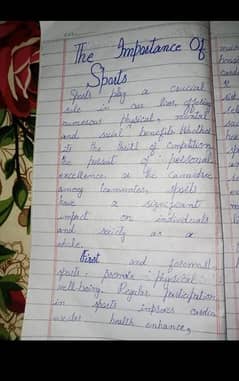 The Importance Of
Sports
Sports play a crucial
role in our lives, offering
numerous physical, mental
and social benefits. Whether
it's the thrill of competition
the pursuit of personal
excellence, or the camaraderie
among teammates, sports
have a significant
impact on individuals
and society as a
whole.
First and foremost,
sports promote physical
well-being. Regular participation
in sports improves cardiov
ascular health enhance,